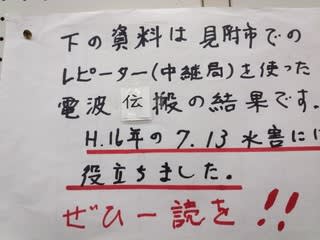 下の資料は見附市での
レピーター(中継局)を使った
電波伝搬の結果です。
H.16年の7.13水害には
役立ちました。
ぜひ一読を!!